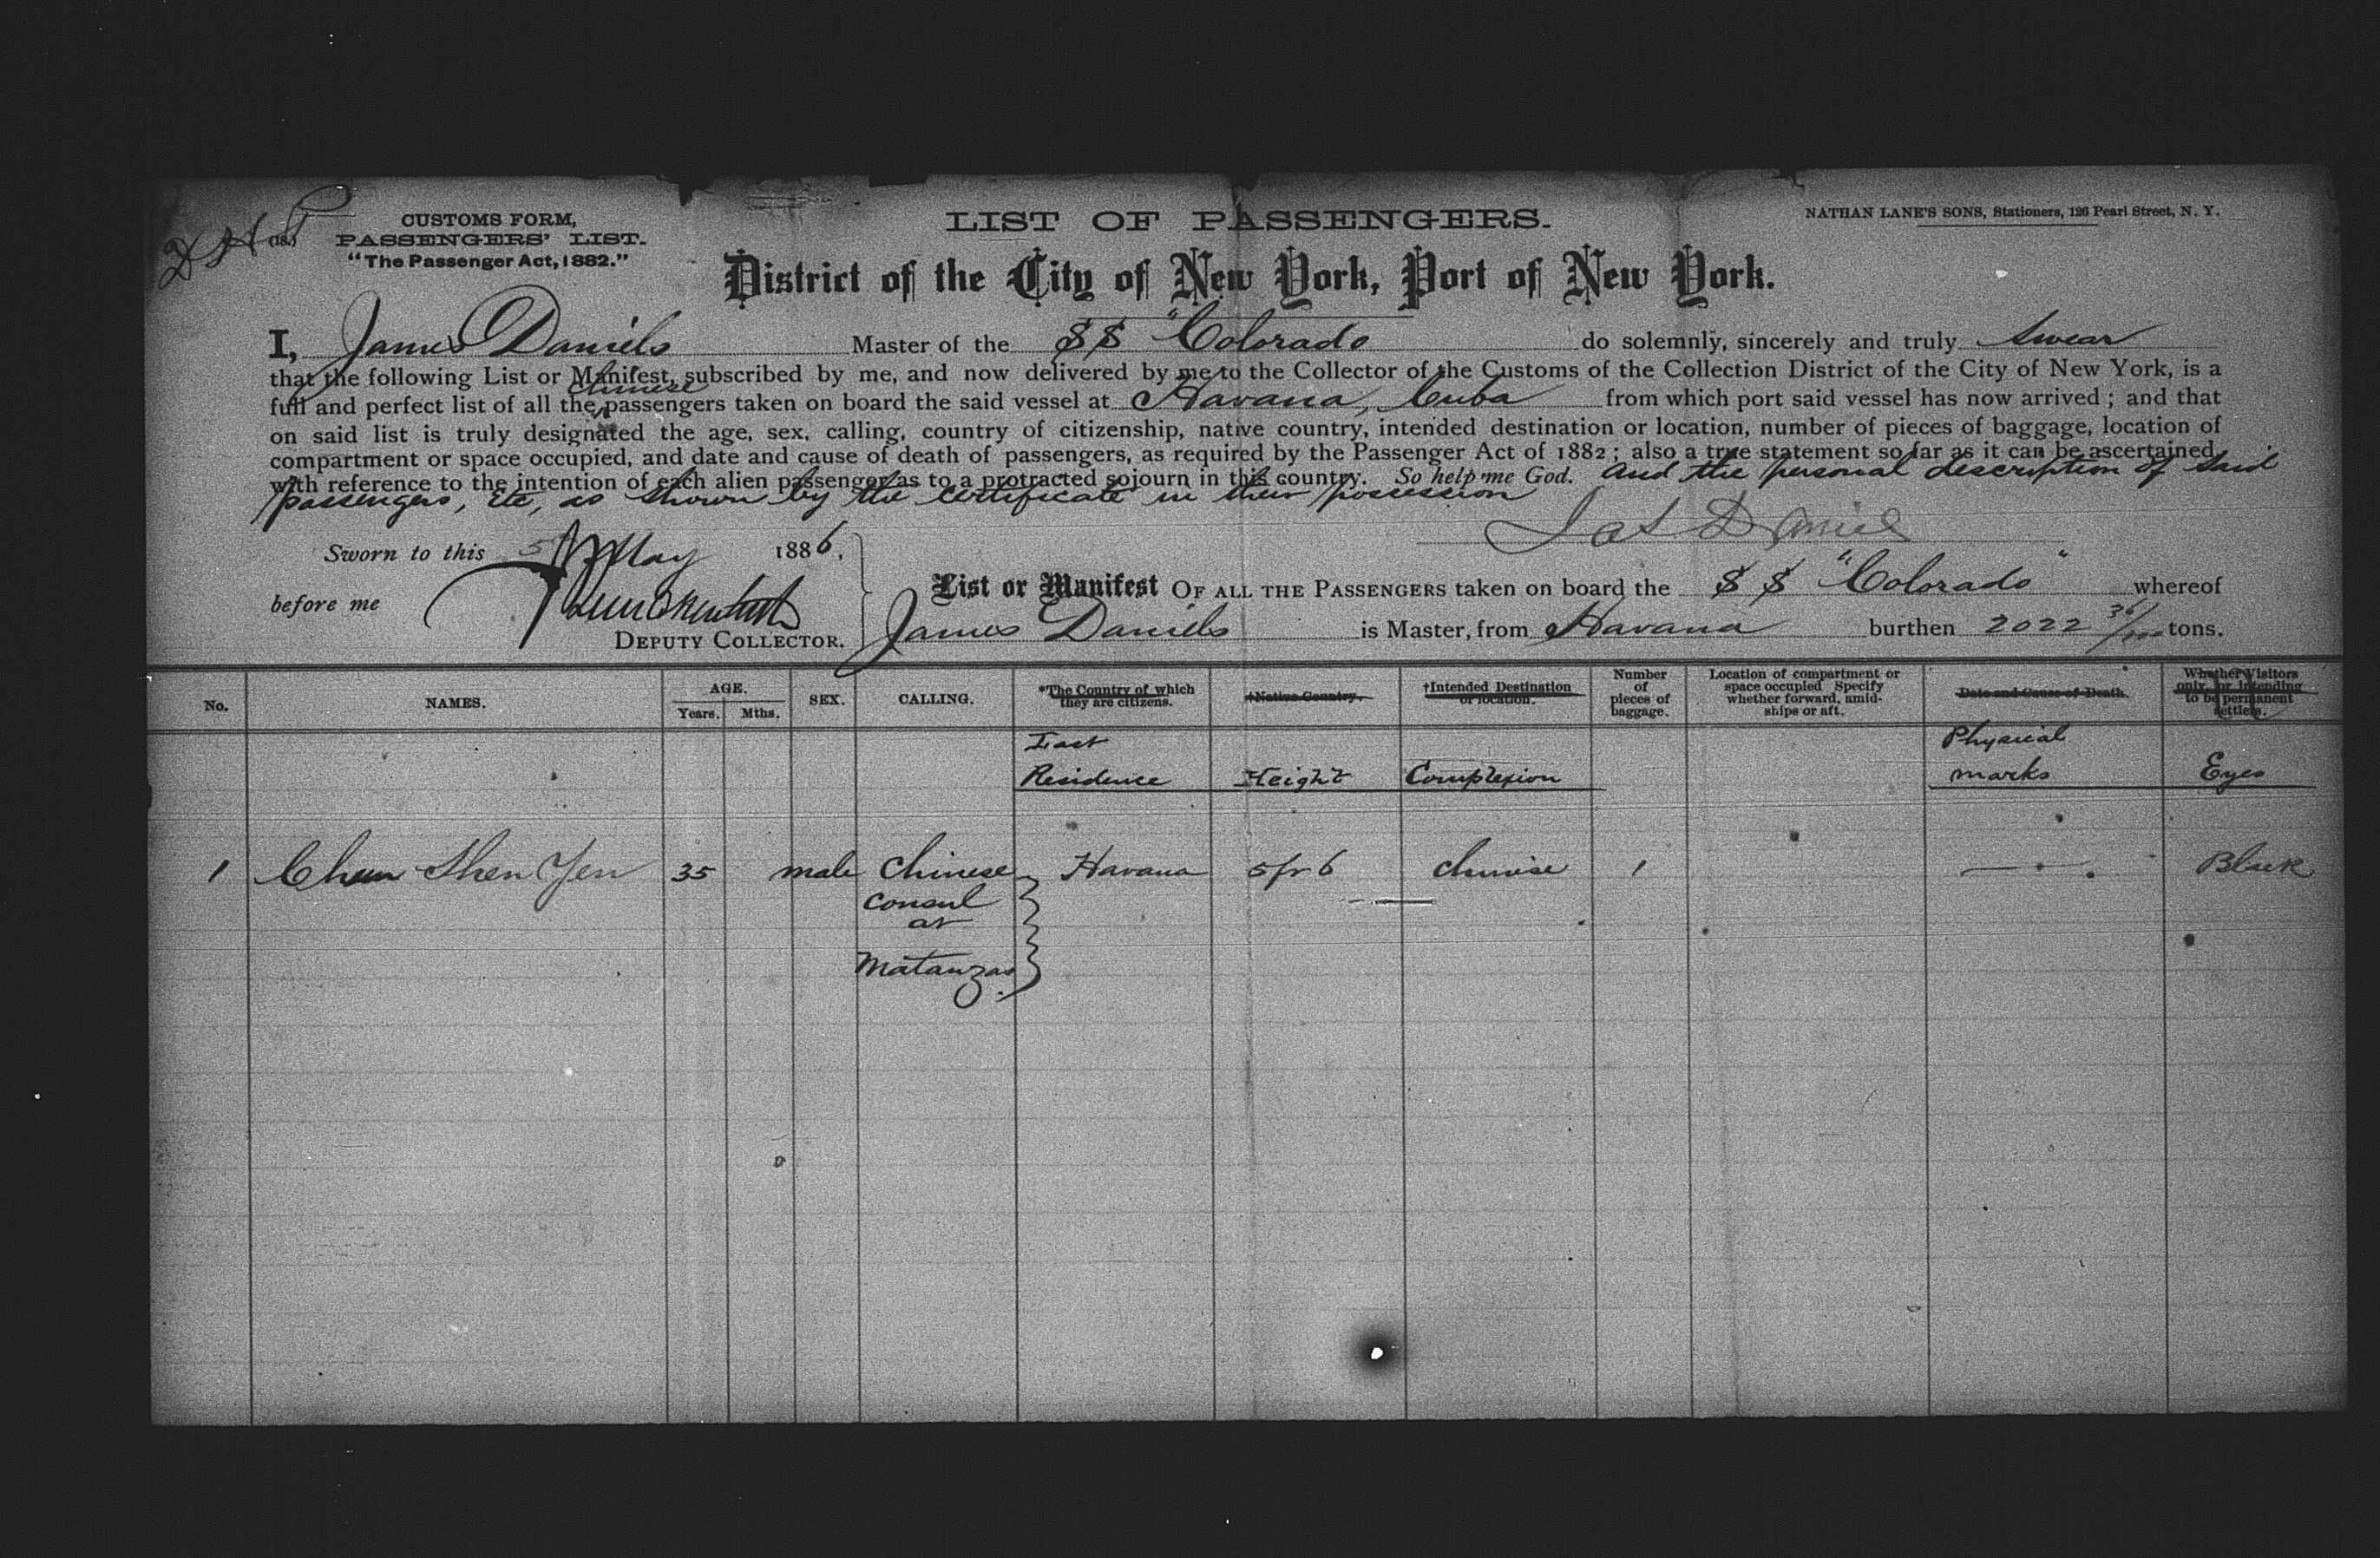 (18.)
CUSTOMS FORM,
PASSENGERS' LIST.
"The Passenger Act, 1882."
LIST OF PASSENGERS.
NATHAN LANE'S SONS, Stationers, 126 Pearl Street, N. Y.
District of the City of New York, Port of New York.
I, James Daniels Master of the SS "Colorado do solemnly, sincerely and truly swear
that the following List or Manifest, subscribed by me, and now delivered by me to the Collector of the Customs of the Collection District of the City of New York, is a
chinese
full and perfect list of all the passengers taken on board the said vessel at Havana, Cuba from which port said vessel has now arrived; and that
on said list is truly designated the age, sex, calling, country of citizenship, native country, intended destination or location, number of pieces of baggage, location of
compartment or space occupied, and date and cause of death of passengers, as required by the Passenger Act of 1882; also a true statement so far as it can be ascertained
with reference to the intention of each alien passenger as to a protracted sojourn in this country. So help me God. and the personal description of said
passengers, etc, as shown by the certificate in their possession
Jas Daniels
Sworn to this 5 May 1886,
before me
DEPUTY COLLECTOR.
List or Manifest OF ALL THE PASSENGERS taken on board the SS "Colorado" whereof
James Daniels is Master, from Havana burthen 2022 36/100 tons.
No. NAMES. AGE. Years. Mths. SEX. CALLING. *The Country of which they are citizens. †Native Country. †Intended Destination or location. Number of pieces of baggage. Location of compartment or space occupied. Specify whether forward, amidships or aft. Date and Cause of Death. Whether Visitors only, or intending to be permanent settlers.
Last Physical
Residence Height Complexion marks Eyes
1 Chun Shen Yen 35 male Chinese Havana 5 ft 6 chinese 1 — Black
Consul
at
Matanzas.